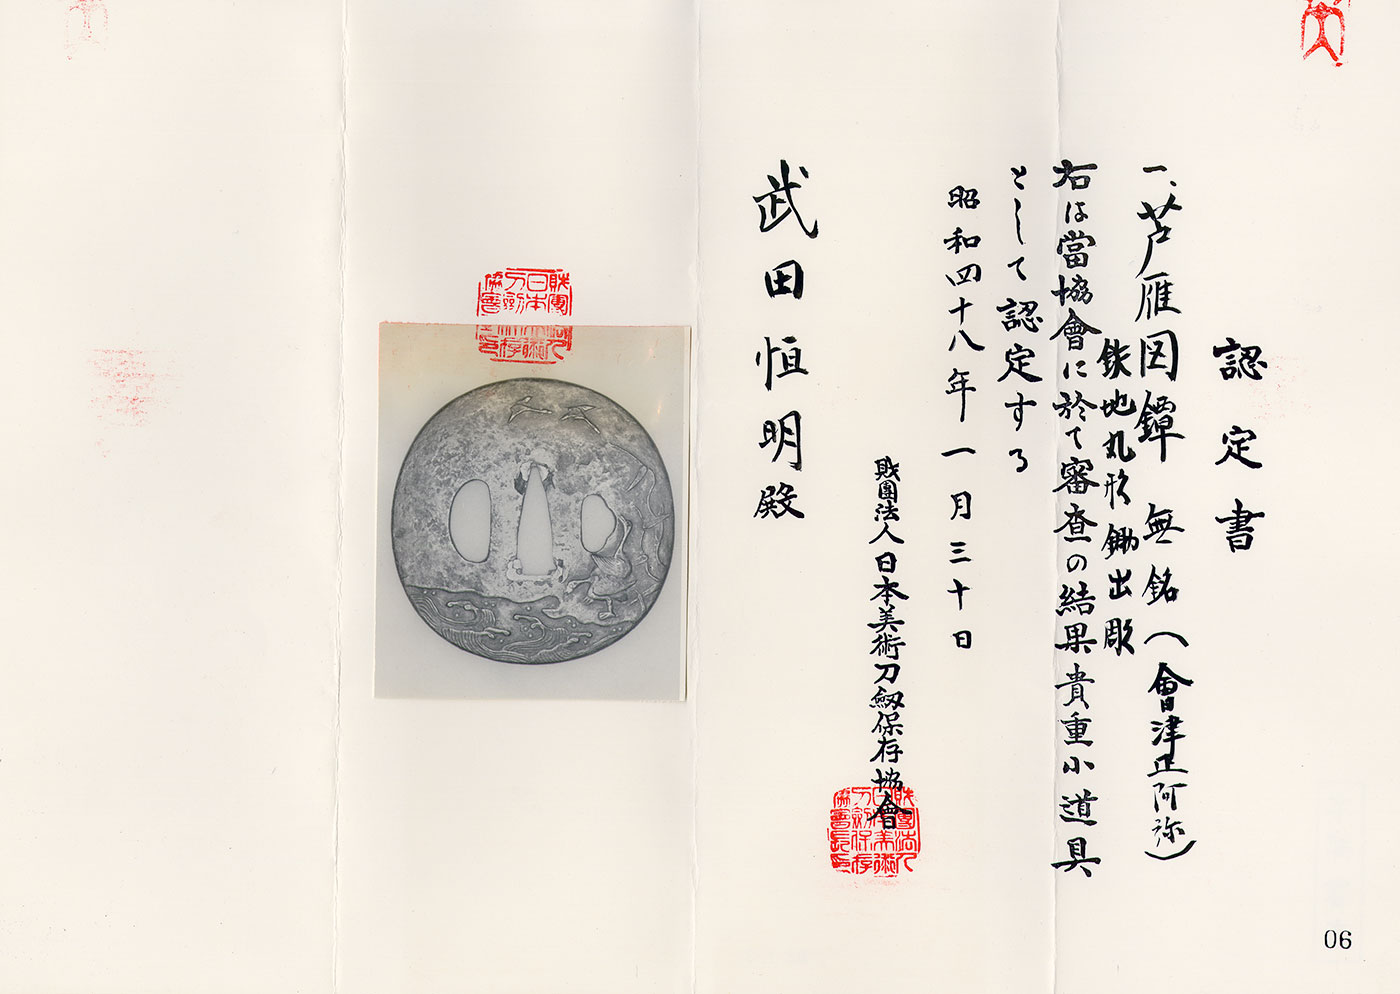 認定書
一、芦雁図鐔 無銘(會津正阿弥)
鉄地丸形鋤出彫
右は當協會に於て審査の結果貴重小道具
として認定する
昭和四十八年一月三十日
財團法人日本美術刀剱保存協會
武田恒明殿
06